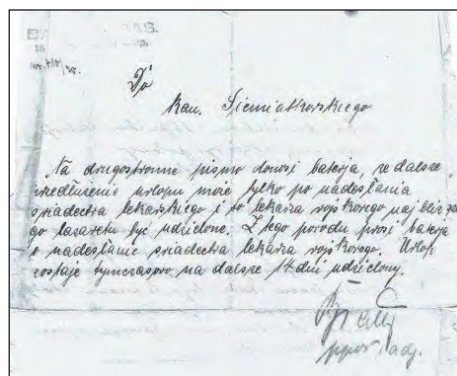 Do
kan. Siemiatkowskiego
Na drugostronne pismo donosi baterja, że dalsze
przedłużenie urlopu może tylko po nadesłaniu
świadectwa lekarskiego i to lekarza wojskowego najbliższe-
go lazaretu być udzielone. Z tego powodu prosi baterja
o nadesłanie świadectwa lekarza wojskowego. Urlop
zostaje tymczasowo na dalsze 14 dni udzielony.
ppor i adj.